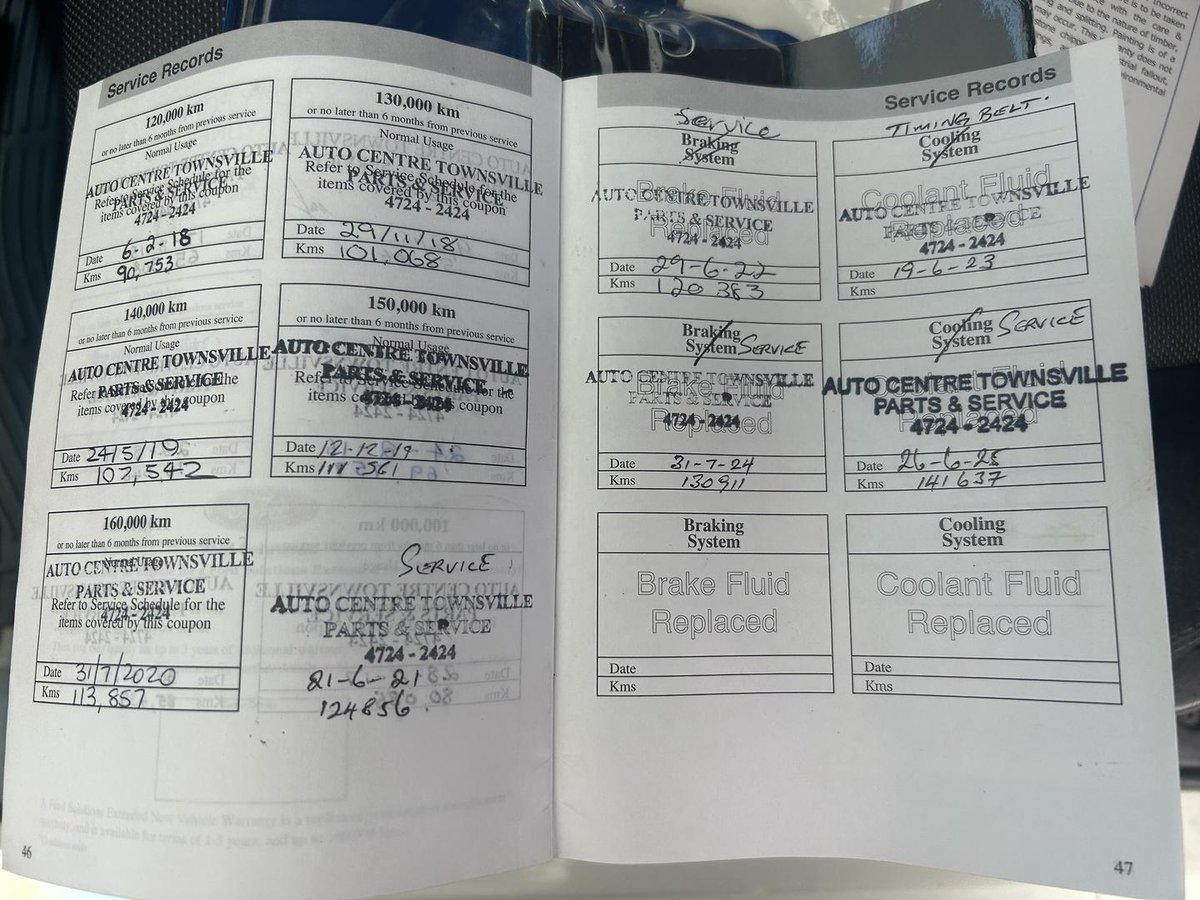 Service Records
120,000 km
or no later than 6 months from previous service
Normal Usage
AUTO CENTRE TOWNSVILLE
PARTS & SERVICE
Refer to Service Schedule for the
items covered by this coupon
4724 - 2424
Date 6-2-18
Kms 90,753
130,000 km
or no later than 6 months from previous service
Normal Usage
AUTO CENTRE TOWNSVILLE
Refer to Service Schedule for the
PARTS & SERVICE
items covered by this coupon
4724 - 2424
Date 29/11/18
Kms 101,068
140,000 km
or no later than 6 months from previous service
Normal Usage
AUTO CENTRE TOWNSVILLE
PARTS & SERVICE
Refer to Service Schedule for the
items covered by this coupon
4724 - 2424
Date 24/5/19
Kms 107,542
150,000 km
or no later than 6 months from previous service
AUTO CENTRE TOWNSVILLE
PARTS & SERVICE
Refer to Service Schedule for the
items covered by this coupon
4724 - 2424
Date 12-12-19
Kms 111 561
160,000 km
or no later than 6 months from previous service
Normal Usage
AUTO CENTRE TOWNSVILLE
PARTS & SERVICE
Refer to Service Schedule for the
4724 - 2424
items covered by this coupon
Date 31/7/2020
Kms 113,857
SERVICE
AUTO CENTRE TOWNSVILLE
PARTS & SERVICE
4724 - 2424
21-6-21
124856
46
Service Records
Service
Braking
System
Brake Fluid
AUTO CENTRE TOWNSVILLE
PARTS & SERVICE
Replaced
4724 - 2424
Date 29-6-22
Kms 120 383
TIMING BELT.
Cooling
System
Coolant Fluid
AUTO CENTRE TOWNSVILLE
PARTS & SERVICE
Replaced
4724 - 2424
Date 19-6-23
Kms
Braking
System SERVICE
AUTO CENTRE TOWNSVILLE
Brake Fluid
PARTS & SERVICE
4724 - 2424
Replaced
Date 31-7-24
Kms 130911
Cooling SERVICE
System
AUTO CENTRE TOWNSVILLE
PARTS & SERVICE
4724 - 2424
Date 26-6-25
Kms 141637
Braking
System
Brake Fluid
Replaced
Date
Kms
Cooling
System
Coolant Fluid
Replaced
Date
Kms
47